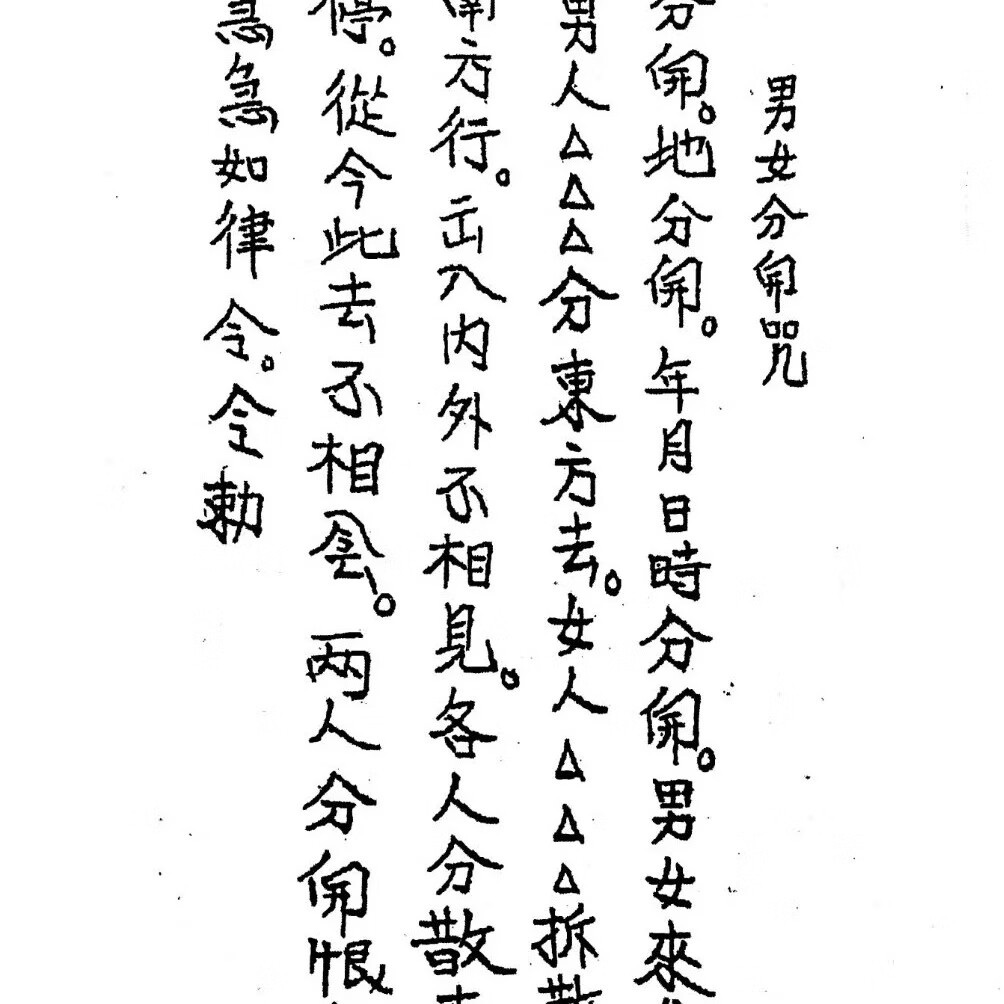 男女分開咒
分開。地分開。年月日時分開。男女來
男人△△△分東方去。女人△△△拆散
南方行。出入內外不相見。各人分散
停。從今此去不相會。两人分開恨
急急如律令。令勅